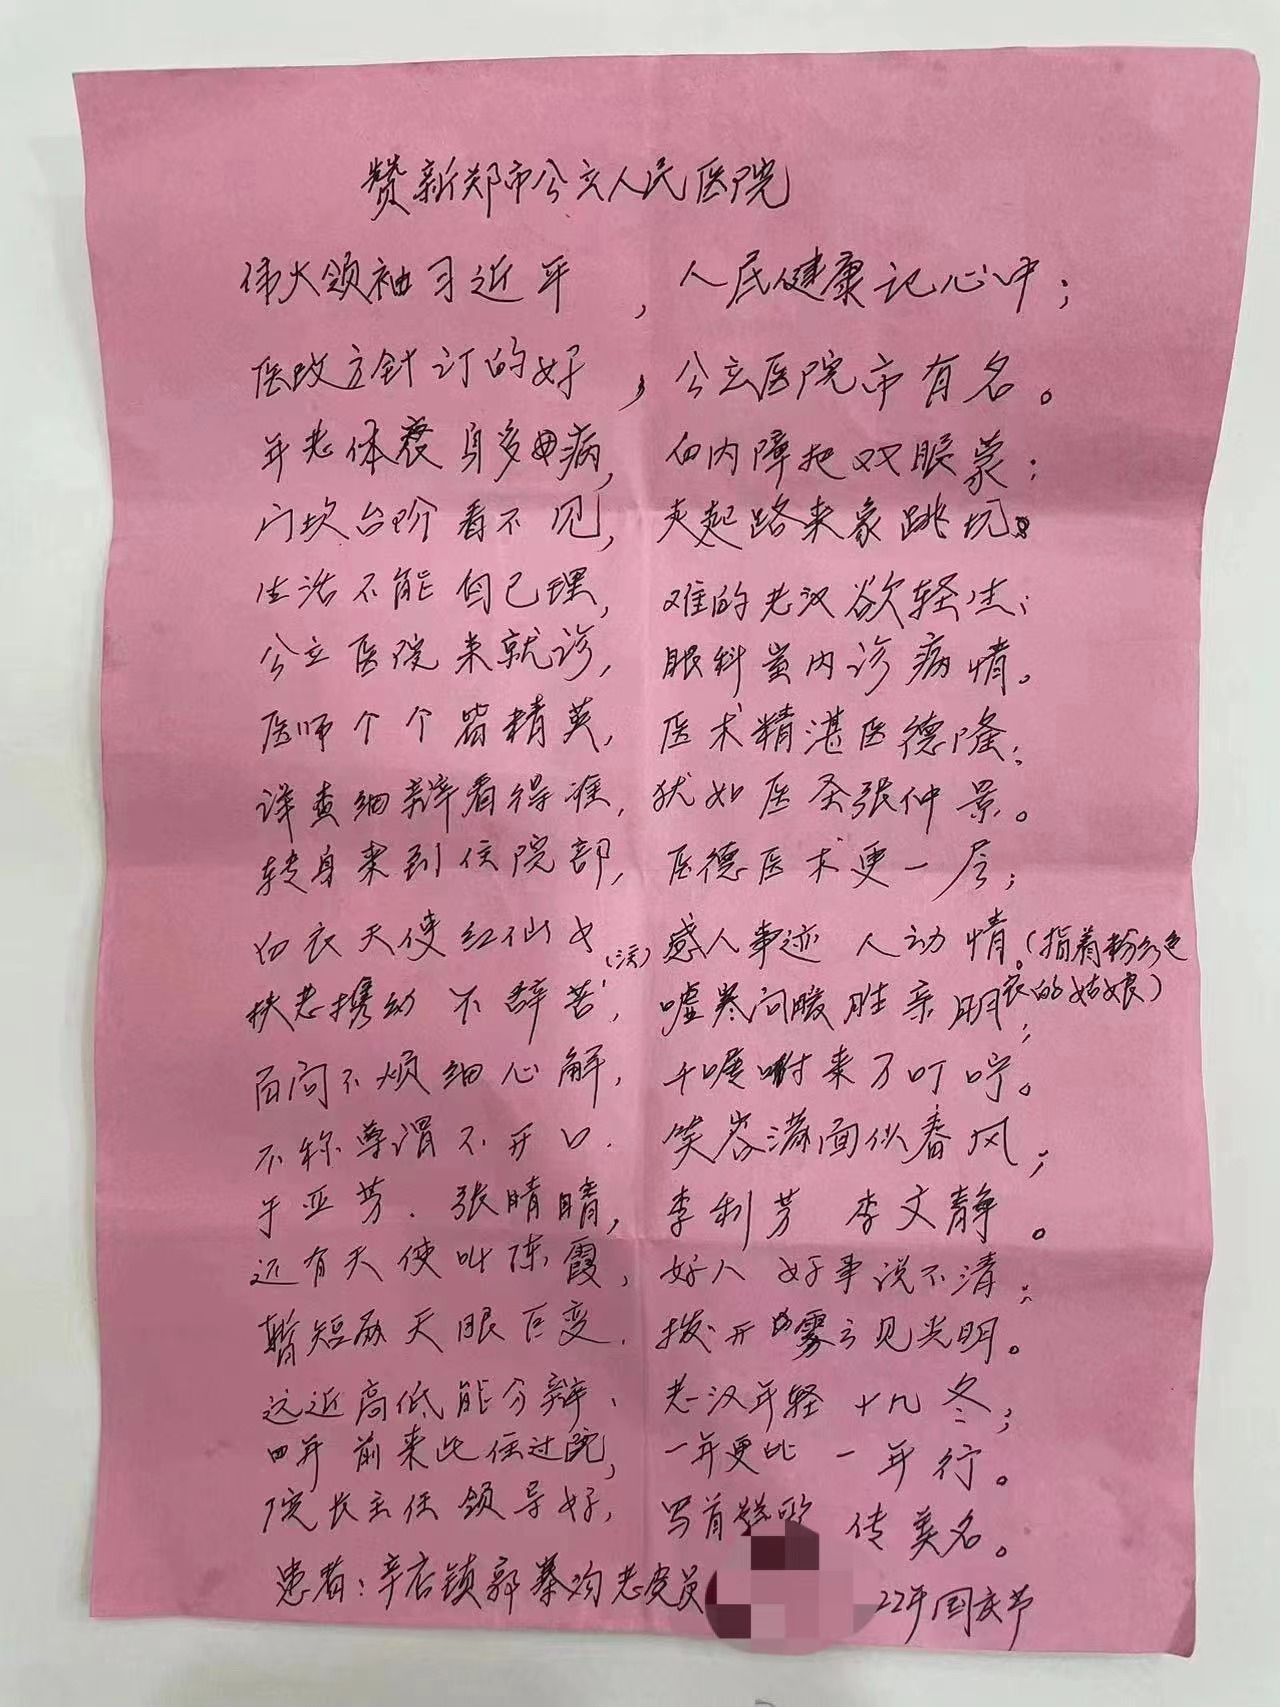 赞新郑市公立人民医院
伟大领袖习近平，人民健康记心中；
医改方针订的好，公立医院市有名。
年老体衰身多病，白内障把双眼蒙；
门坎台阶看不见，走起路来象跳坑。
生活不能自己理，难的老汉欲轻生；
公立医院来就诊，眼科室内诊病情。
医师个个皆精英，医术精湛医德隆；
详查细辩看得准，犹如医圣张仲景。
转身来到住院部，医德医术更一层；
白衣天使红仙女（注）感人事迹人动情。（指着粉红色
扶老携幼不辞苦，嘘寒问暖胜亲朋；衣的姑娘）
百问不烦细心解，千嘱咐来万叮咛。
不称尊谓不开口．笑容满面似春风；
于亚芳．张晴晴，李利芳 李文静。
还有天使叫陈霞，好人好事说不清；
暂短两天眼巨变．拨开雾云见光明。
远近高低能分辩、老汉年轻十九冬；
四年前来此住过院，一年更比一年行。
院长主任领导好，写首赞歌传美名。
患者：辛店镇郭 老党员 22年国庆节